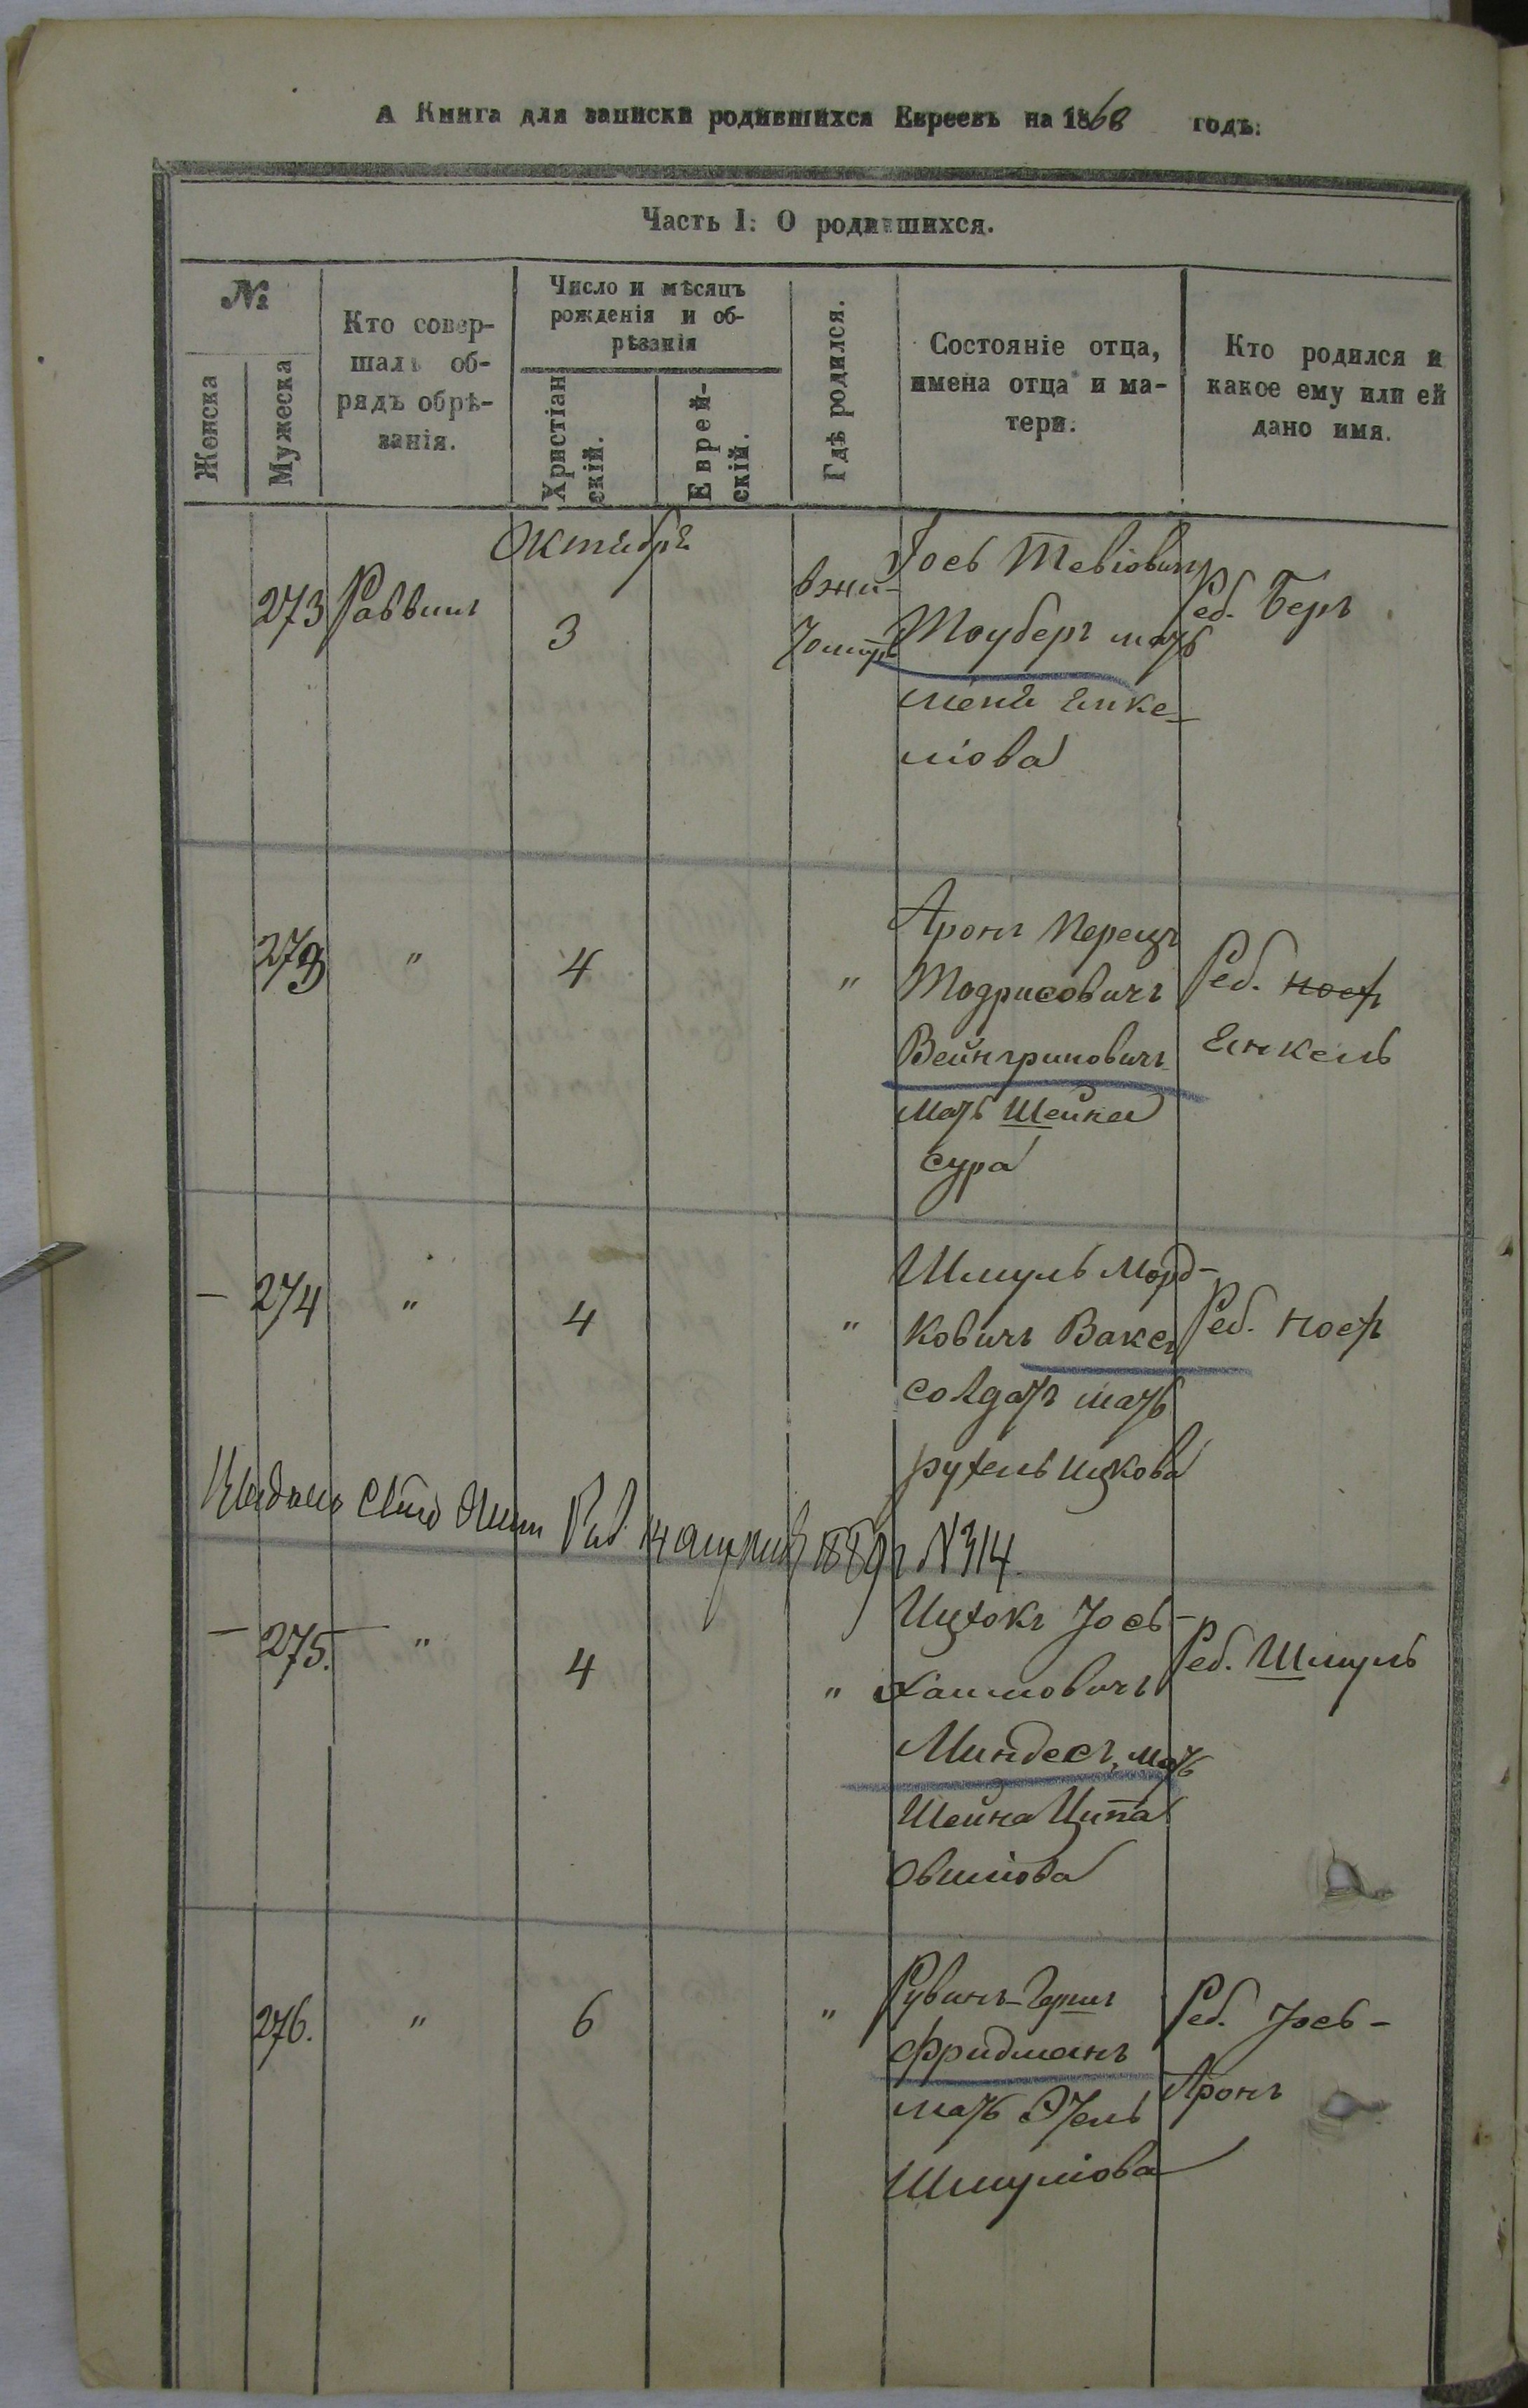 А Книга для записки родившихся Евреевъ на 1868 годъ:
Часть I: О родившихся.
№
Женска
Мужеска
Кто совер-
шалъ об-
рядъ обрѣ-
занія.
Число и мѣсяцъ
рожденія и об-
рѣзанія
Христіан
скій.
Еврей-
скій.
Гдѣ родился.
Состояніе отца,
имена отца и ма-
тери.
Кто родился и
какое ему или ей
дано имя.
Октября
273 Раввинъ
3
вжи-
томирѣ
Іось Тевіовичъ
Тоуберъ мать
Енке-
ліова
Реб. Беръ
273
"
4
"
Аронъ Перецъ
Тодрисовичъ
Вейнгриновичъ
мать Шейна
сура
Реб. Ноехъ
Енкель
— 274
"
4
"
Шмуль Морд-
ковичъ Вакеъ
солдатъ мать
рухель ицкова
Реб. Ноехъ
14 апрѣля 1889 г N 314.
— 275. —
"
4
"
Ицхокъ Іось-
Хаимовичъ
Миндесъ, мать
Шейна Ципа
Овшіова
Реб. Шмуль
276.
"
6
"
Рувинъ-Гершъ
Фридманъ
мать Этель
Шмуліова
Реб. Іось-
Аронъ